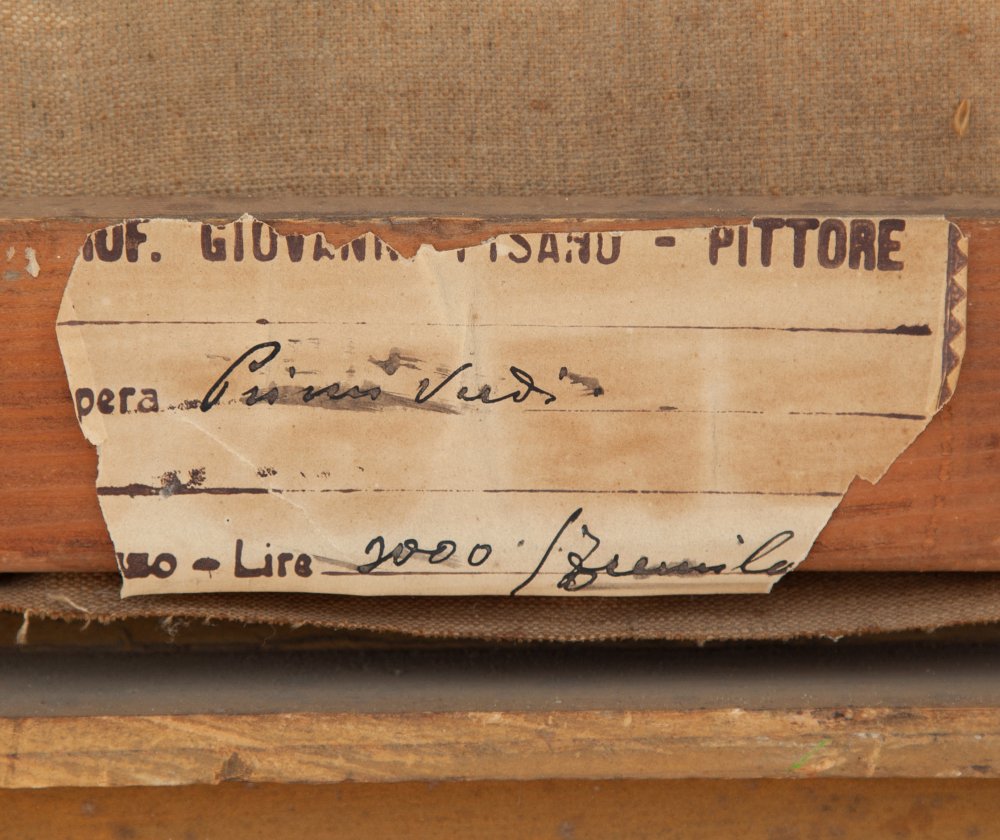 ROF. GIOVANNI PISANO - PITTORE
pera Primi Verdi
zzo - Lire 3000 /Tremila